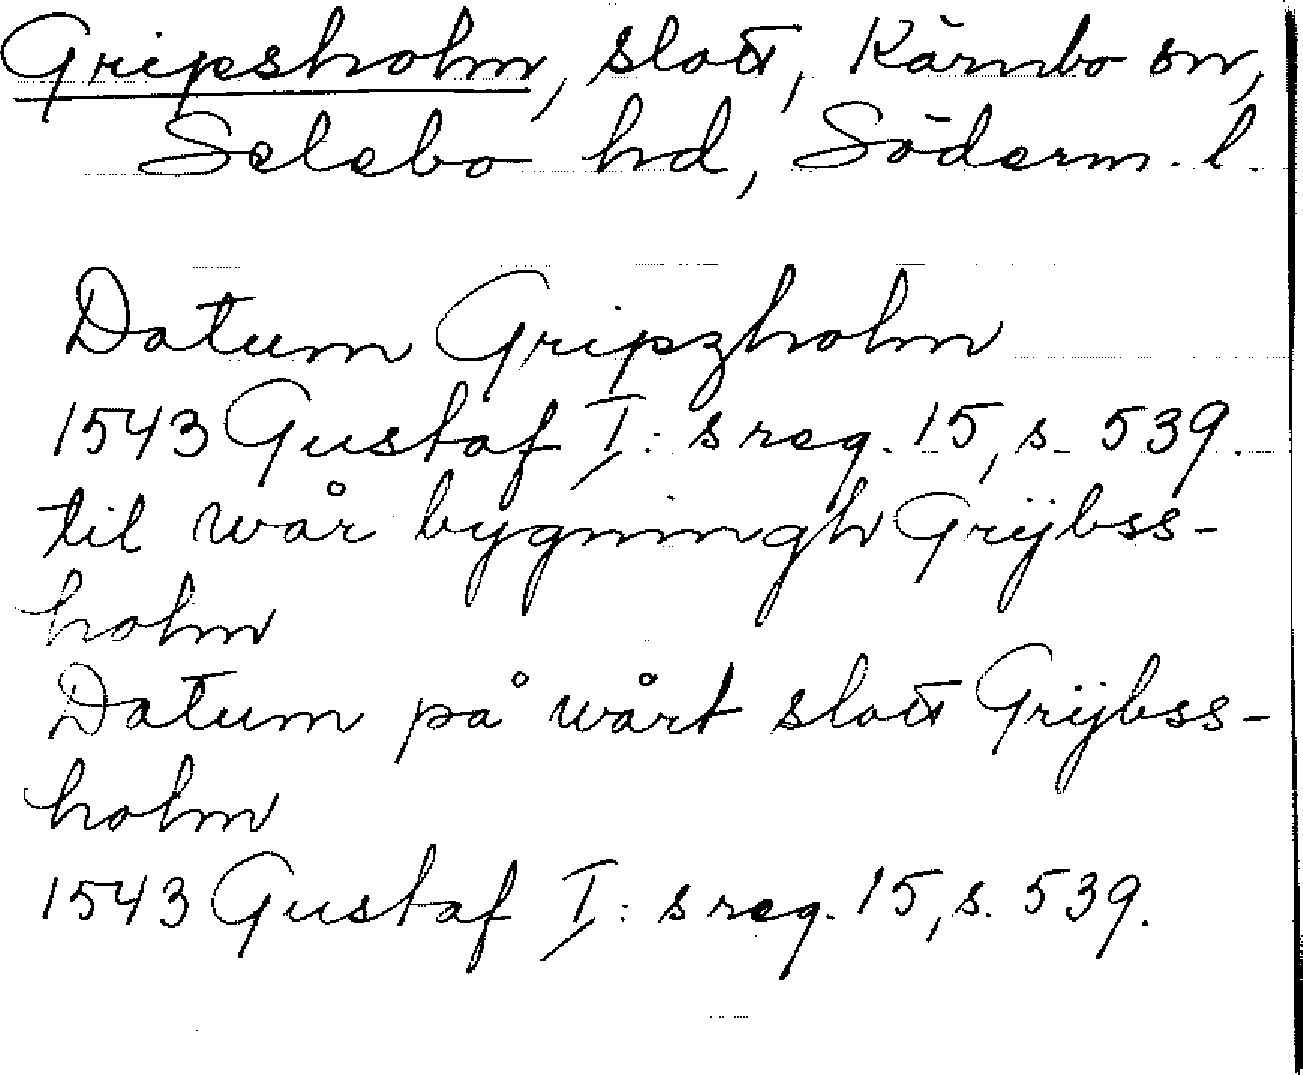 Gripsholm, slott, Kärnbo sn,
Selebo hd, Söderm. l.
Datum Gripzholm
1543 Gustaf I:s reg. 15, s. 539.
til wår bygningh Grijbss-
holm
Datum på wårt slott Grijbss-
holm
1543 Gustaf I:s reg. 15, s. 539.